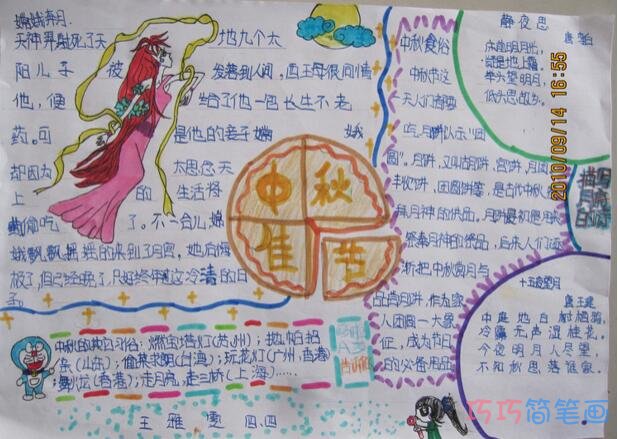 嫦娥奔月
天神羿射死了天 地九个太
阳儿子 被 发落到人间,西王母很同情
他,便 给了他一包长生不老
药。可 是他的妻子嫦 娥
却因为 太思念天
上 的 生活将
偷吃 了。不一会儿,嫦
娥飘飘摇摇的来到了月宫,她后悔
极了,但已经晚了,只好终年过这冷清的日
子。
中秋佳节
中秋食俗
中秋节这
天人们都要
吃月饼以示"团
圆"。月饼,又叫胡饼,宫饼,月团
丰收饼,团圆饼等,是古代中秋
祭月神的供品,月饼最初是用来
祭奉月神的祭品,后来人们逐
渐把中秋赏月与
品尝月饼,作为家
人团圆一大象
征,成为节日
的必备用品
静夜思
唐 李白
床前明月光,
疑是地上霜。
举头望明月,
低头思故乡。
2010/09/14 16:55
描写
月亮
的诗
十五夜望月
唐 王建
中庭地白树栖鸦,
冷露无声湿桂花,
今夜明月人尽望,
不知秋思落谁家。
中秋的其它习俗:燃宝塔灯(苏州);
东(山东);偷菜求郎(台湾);玩花灯(广州,香港)
舞火龙(香港);走月亮,走三桥(上海)……
王雅雯 四、四
巧巧简笔画